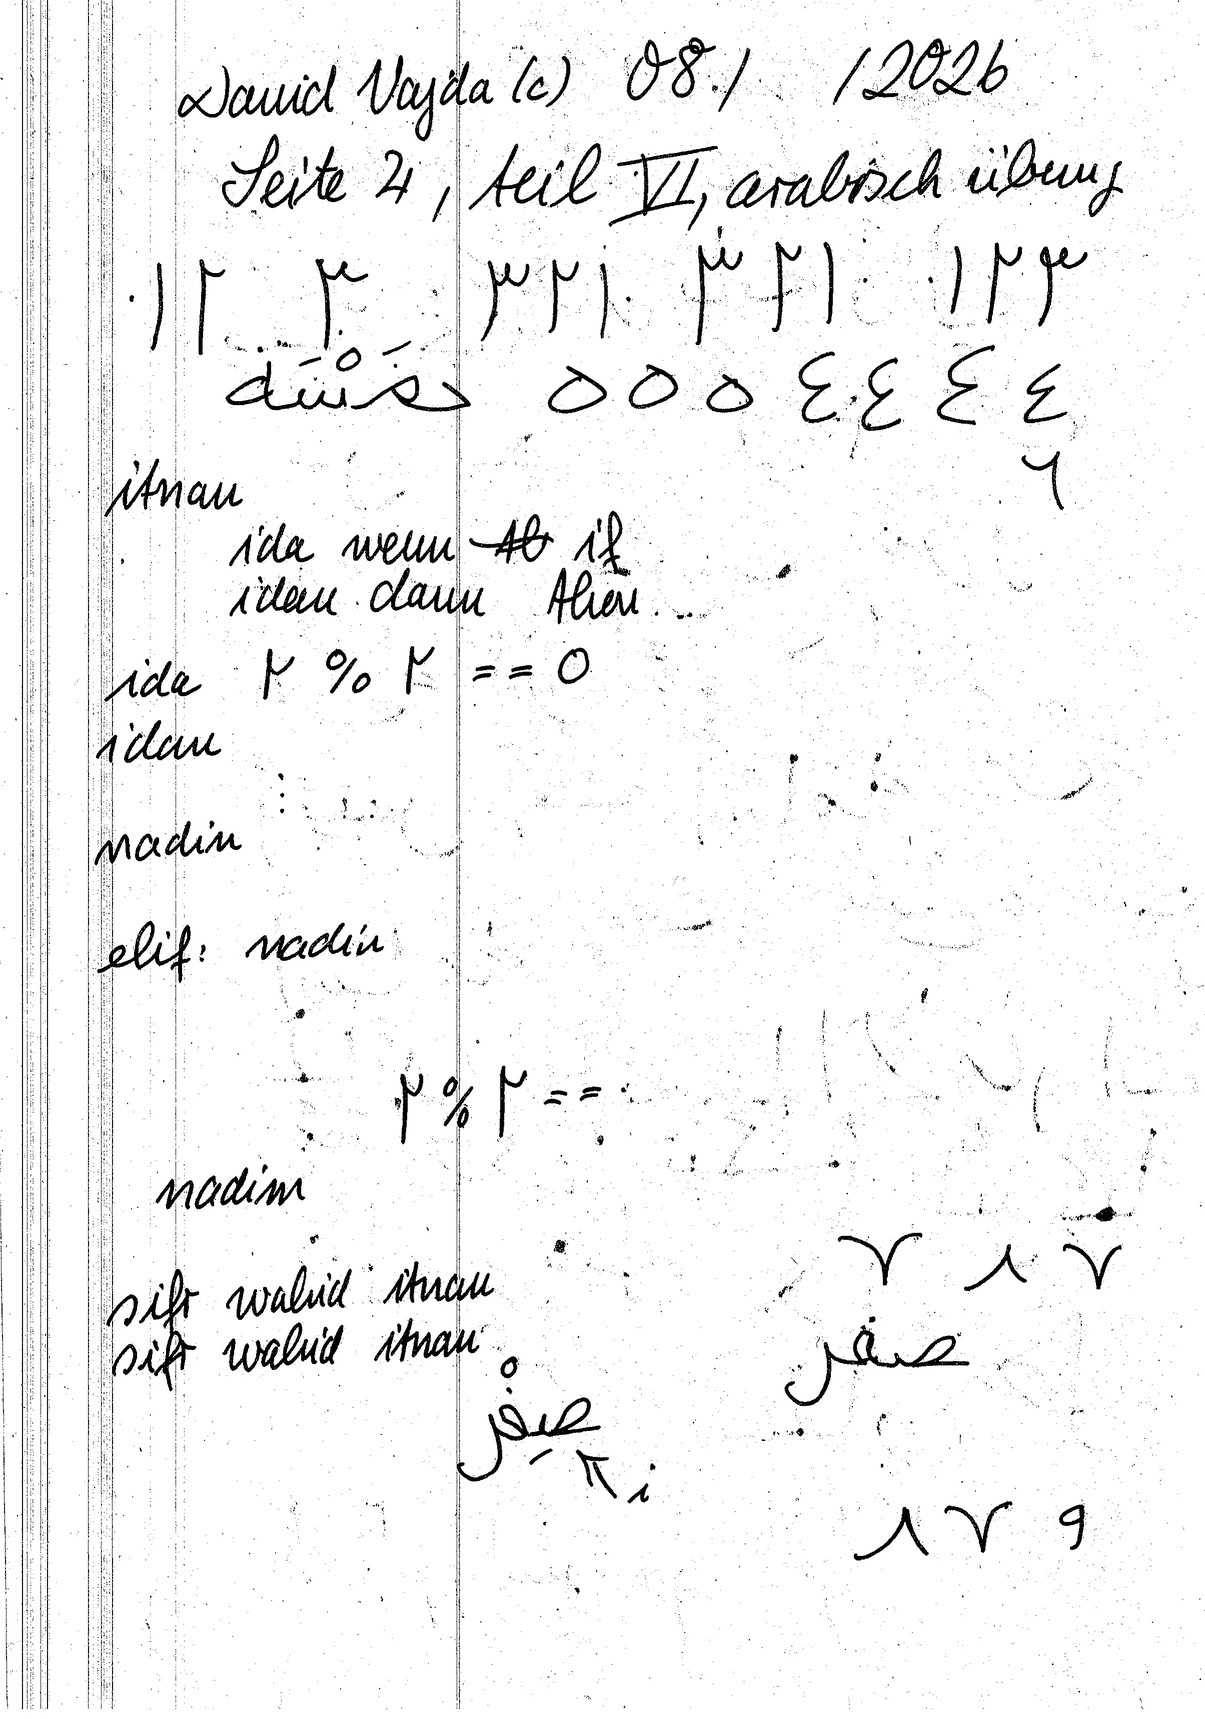 David Vajda (c) 08./ /2026
Seite 4, teil VI, arabisch übung
.١٢ ٣ ٣٢١. ٣٢١ .١٢٣
خَمْسَه ٥ ٥ ٥ ٤ ٤ ٤ ٤
٦
itnan
ida wenn if
idan dann
ida ٢ % ٢ == 0
idan
nadin
elif: nadin
٢ % ٢ == .
nadim
٧ ٨ ٧
sifr wahid itnan
sifr wahid itnan
صفر
صِفْر
i
٨ ٧ ٩